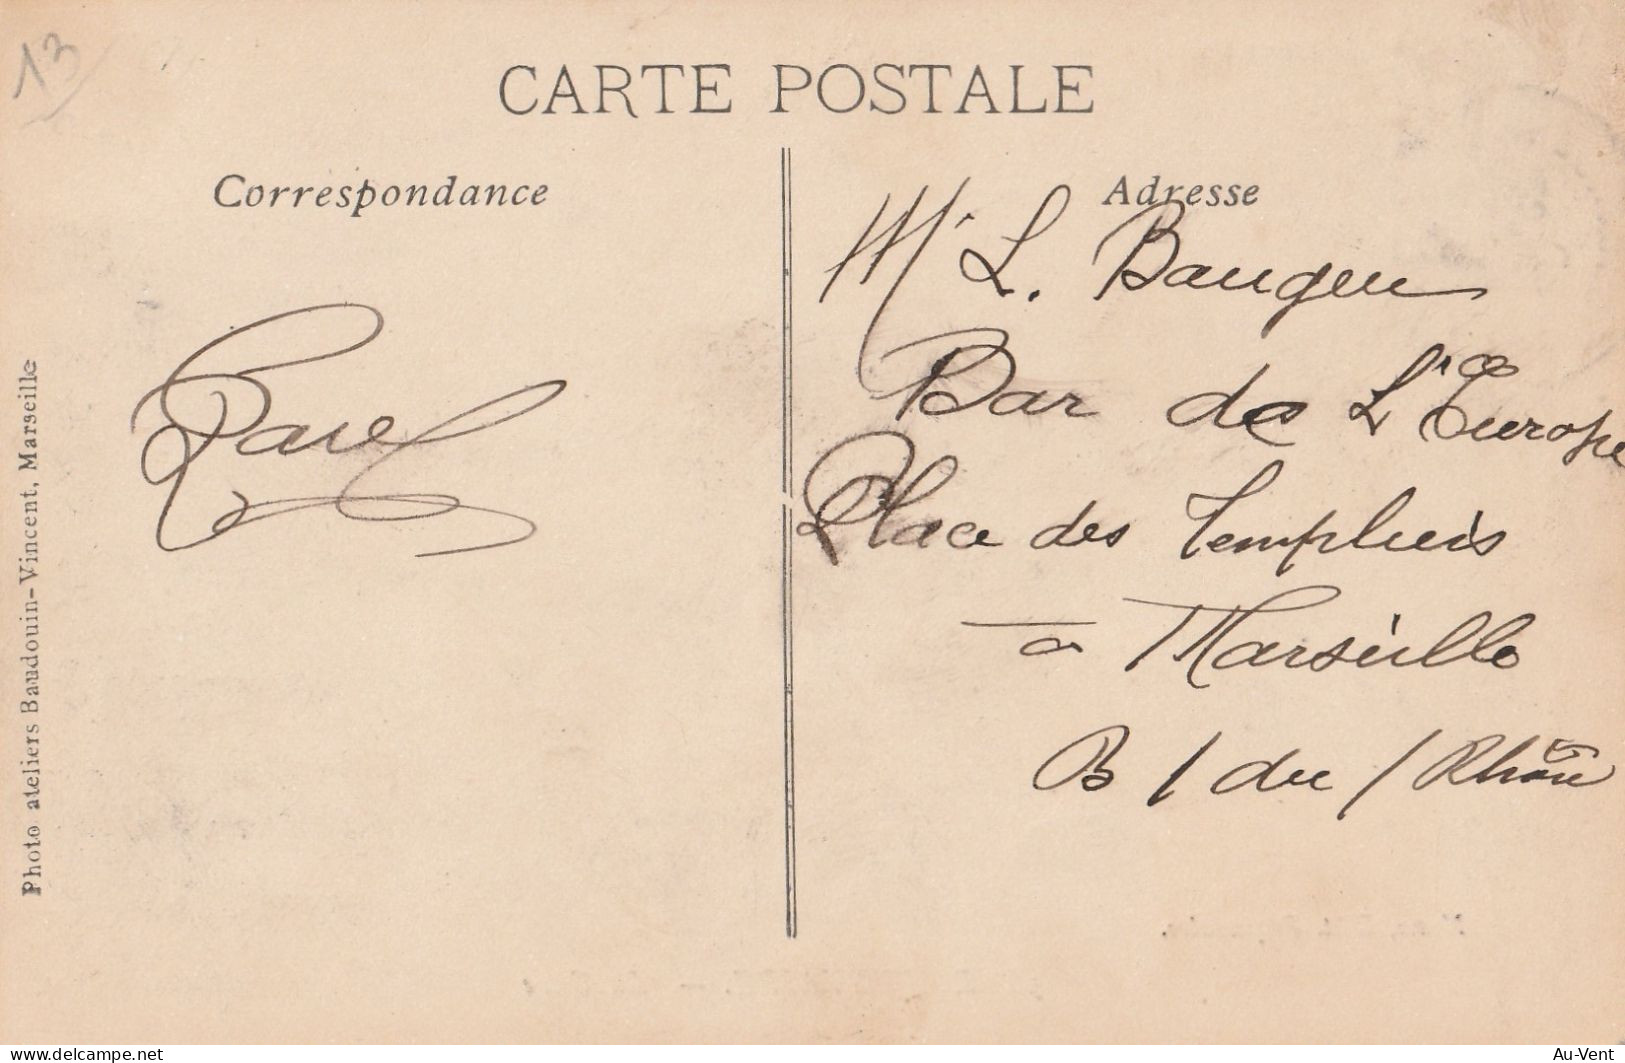 13
CARTE POSTALE
Correspondance
Adresse
Mr L. Baugeu
Bar de L'Europe
Place des
à Marseille
B / du / Rhône
Photo ateliers Baudouin-Vincent, Marseille
www.delcampe.net
Au-Vent